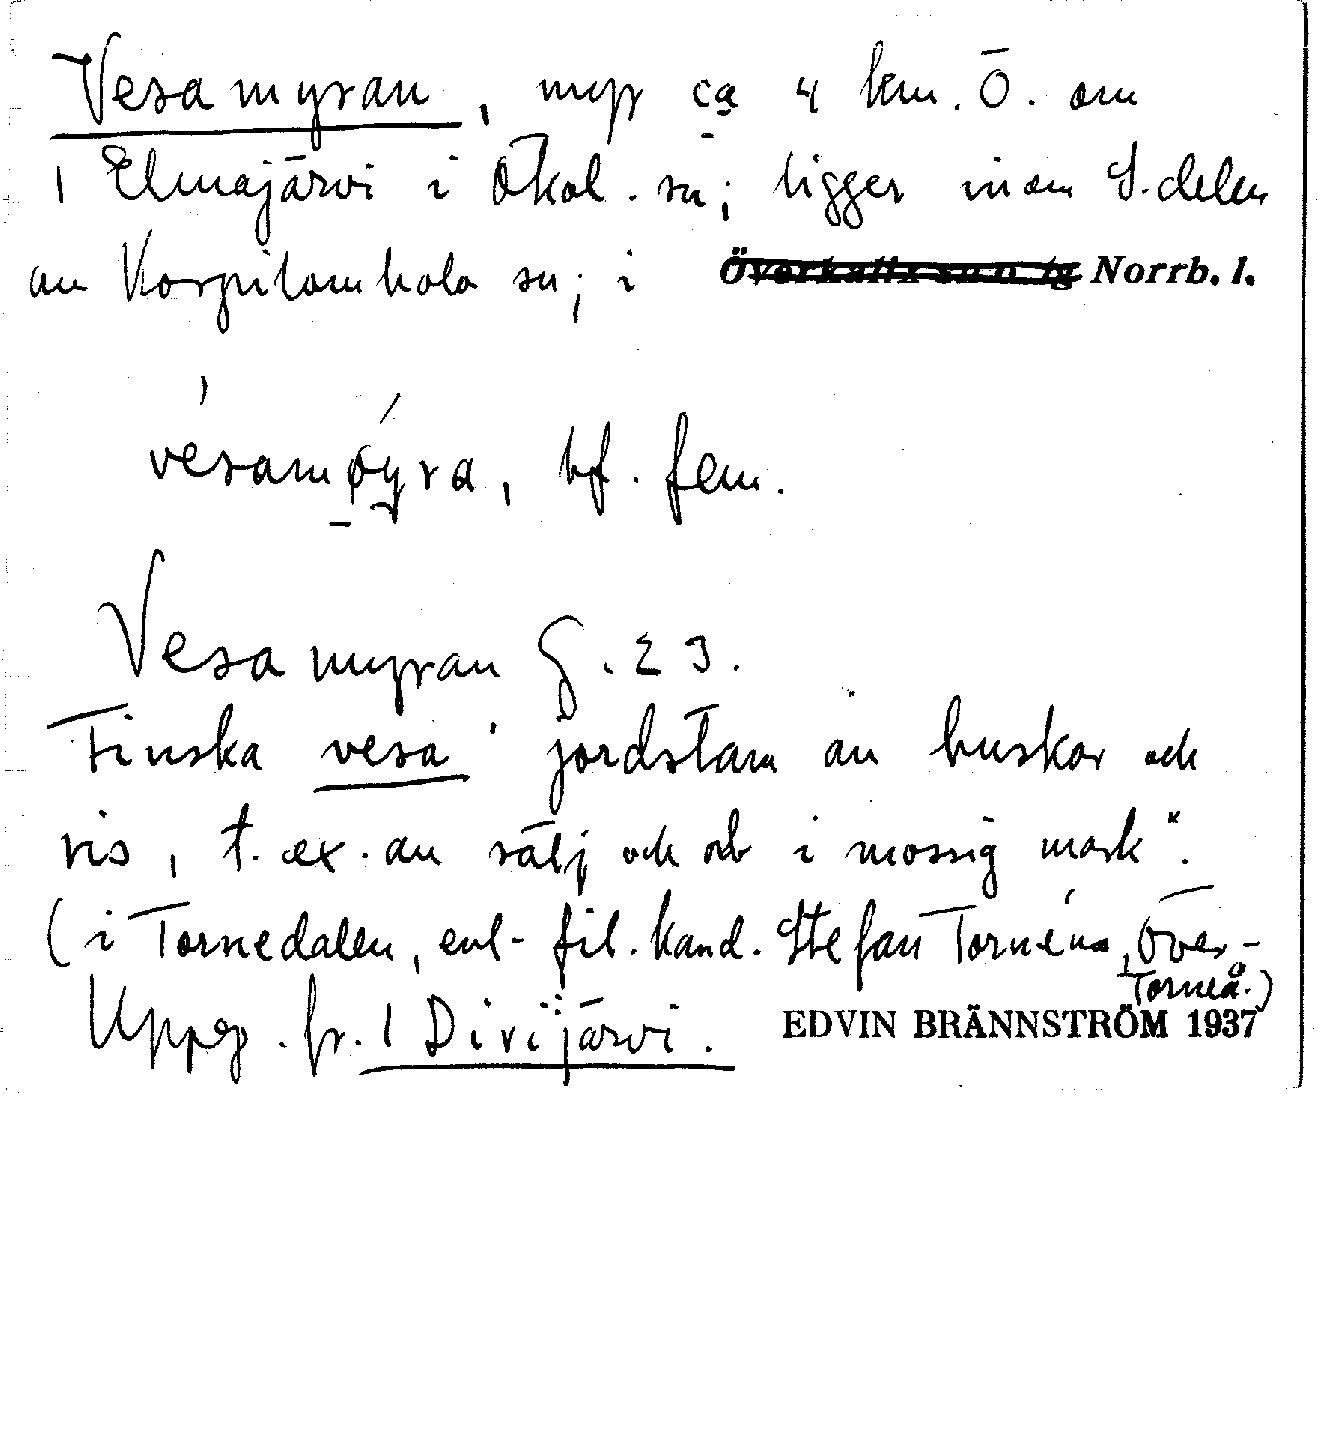 Vesamyran, myr ca 4 km. Ö. om
1 Elmajärvi i Ökal. sn; ligger inom S.delen
av Korpilombolo sn; i Överkalix sn o. tg Norrb. l.
vésamøyra, bf. fem.
Vesamyran G. 23.
Finska vesa "jordstam av buskar och
ris, t. ex. av sälj och i mossig mark".
(i Tornedalen, enl. fil. kand. Stefan Tornéus, Över-
Torneå.)
Uppg. fr. 1 Divijärvi. EDVIN BRÄNNSTRÖM 1937